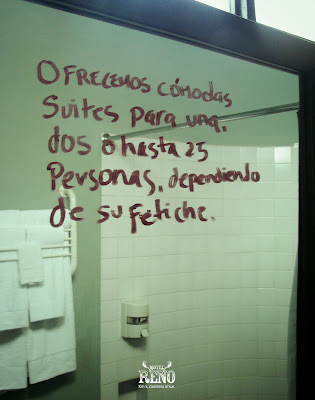 OFRECEMOS CÓMODAS
Suites para una,
dos o hasta 25
Personas, dependiendo
de su fetiche.
MOTEL
RENO